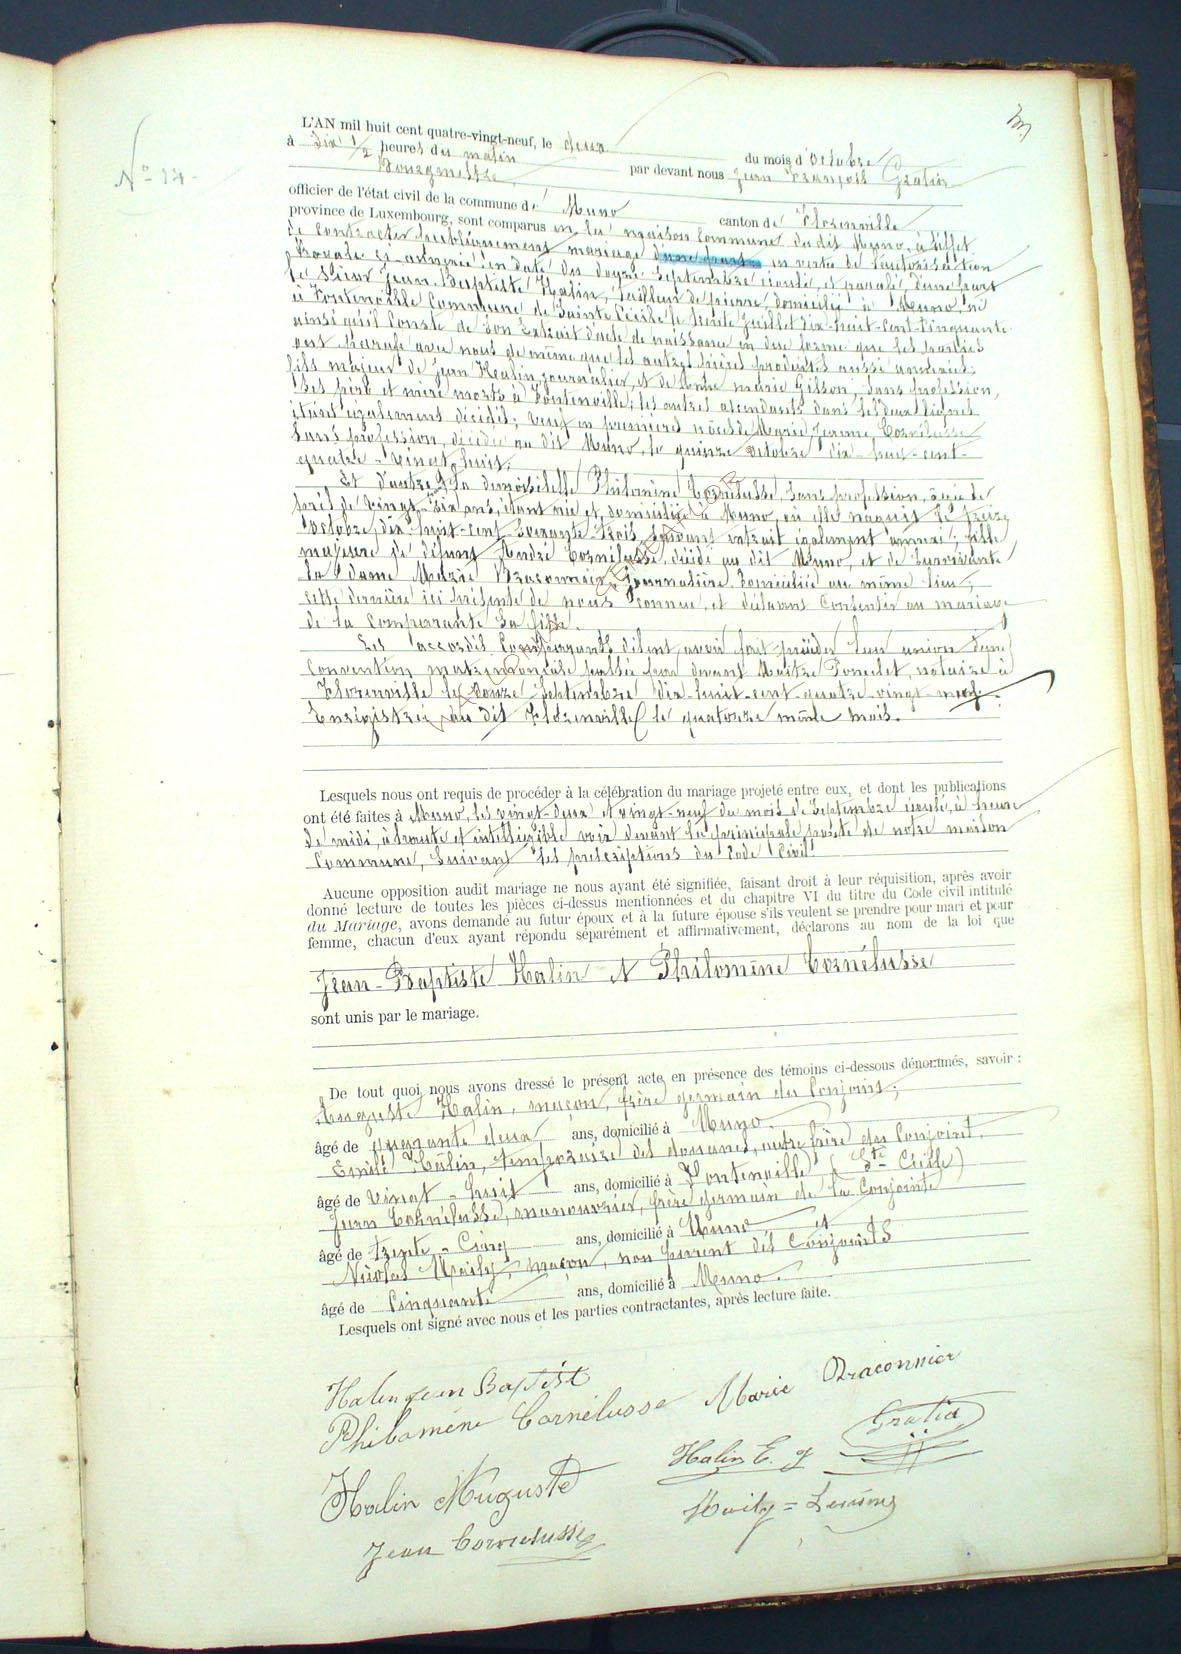 N° 17.
L'AN mil huit cent quatre-vingt-neuf, le deux du mois d'Octobre
à dix 1/2 heures du matin par devant nous Jean François Gratia
Bourgmestre
officier de l'état civil de la commune de Muno canton de Florenville
province de Luxembourg, sont comparus en la maison Commune du dit Muno, à l'effet
de contracter publiquement mariage d'une part en vertu de l'autorisation
Royale ci-annexée en date du Septembre écoulé, et d'une part
le sieur Jean-Baptiste Halin, tailleur de pierre, domicilié à Muno, né
à Fontenoille Commune de Sainte Cécile le trente Juillet dix-huit-cent-Cinquante
ainsi qu'il Conste de son Extrait d'acte de naissance en due forme que les parties
ont paraphé avec nous de même que les autres pièces produites aussi annexées;
fils majeur de Jean Halin, journalier, et de Anne Marie Gilson, sans profession,
ses père et mère morts à Fontenoille; les autres ascendants dans les deux lignes
étant également décédés; veuf en premières nôces de Marie Jeanne Cornélusse
sans profession, décédée au dit Muno, le quinze octobre dix-huit-cent-
quatre-vingt-huit.
Et d'autre la demoiselle Philomène Cornélusse, sans profession, âgée de
près de vingt-six ans, étant née et domiciliée à Muno, où elle naquit le treize
octobre, dix-huit-cent Soixante-trois, suivant extrait également annexé; fille
majeure de défunt André Cornélusse, décédé au dit Muno, et de Survivante
la dame Marie Braconnier, journalière, domiciliée au même lieu;
cette dernière ici présente de nous connue, et déclarant Consentir au mariage
de la Comparante sa fille.
Les accordés Comparants disent avoir fait précéder leur union d'une
Convention matrimoniale passée par devant Maître Poncelet, notaire à
Florenville le douze Septembre dix-huit-cent quatre-vingt-neuf.
Enregistrée au dit Florenville le quatorze même mois.
Lesquels nous ont requis de procéder à la célébration du mariage projeté entre eux, et dont les publications
ont été faites à Muno, les vingt-deux et vingt-neuf du mois de Septembre écoulé, à heure
de midi, à haute et intelligible voix devant la principale porte de notre maison
Commune, suivant les prescriptions du Code Civil.
Aucune opposition audit mariage ne nous ayant été signifiée, faisant droit à leur réquisition, après avoir
donné lecture de toutes les pièces ci-dessus mentionnées et du chapitre VI du titre du Code civil intitulé
du Mariage, avons demandé au futur époux et à la future épouse s'ils veulent se prendre pour mari et pour
femme, chacun d'eux ayant répondu séparément et affirmativement, déclarons au nom de la loi que
Jean-Baptiste Halin et Philomène Cornélusse
sont unis par le mariage.
De tout quoi nous avons dressé le présent acte en présence des témoins ci-dessous dénommés, savoir :
Auguste Halin, maçon, frère germain du Conjoint;
âgé de quarante deux ans, domicilié à Muno.
Emile Halin, temporaire des douanes, autre frère du Conjoint.
âgé de vingt-huit ans, domicilié à Fontenoille, (Ste Cécile)
Jean Cornélusse, manouvrier, frère germain de la Conjointe
âgé de trente-Cinq ans, domicilié à Muno, et
Nicolas Maily, maçon, non parent des Conjoints
âgé de Cinquante ans, domicilié à Muno.
Lesquels ont signé avec nous et les parties contractantes, après lecture faite.
Halin Jean Baptist
Philomène Cornélusse Marie Braconnier
Gratia
Halin Auguste Halin E. J
Jean Cornelusse Maily =